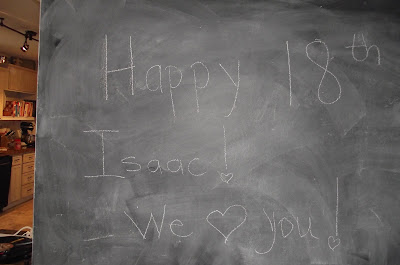 Happy 18th
Isaac!
We ♡ you!